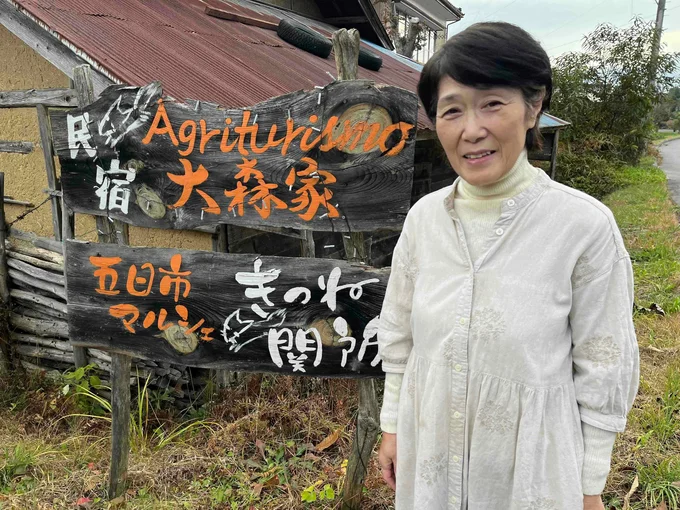 民宿
Agriturismo
大森家
五日市
マルシェ
きつね
関所